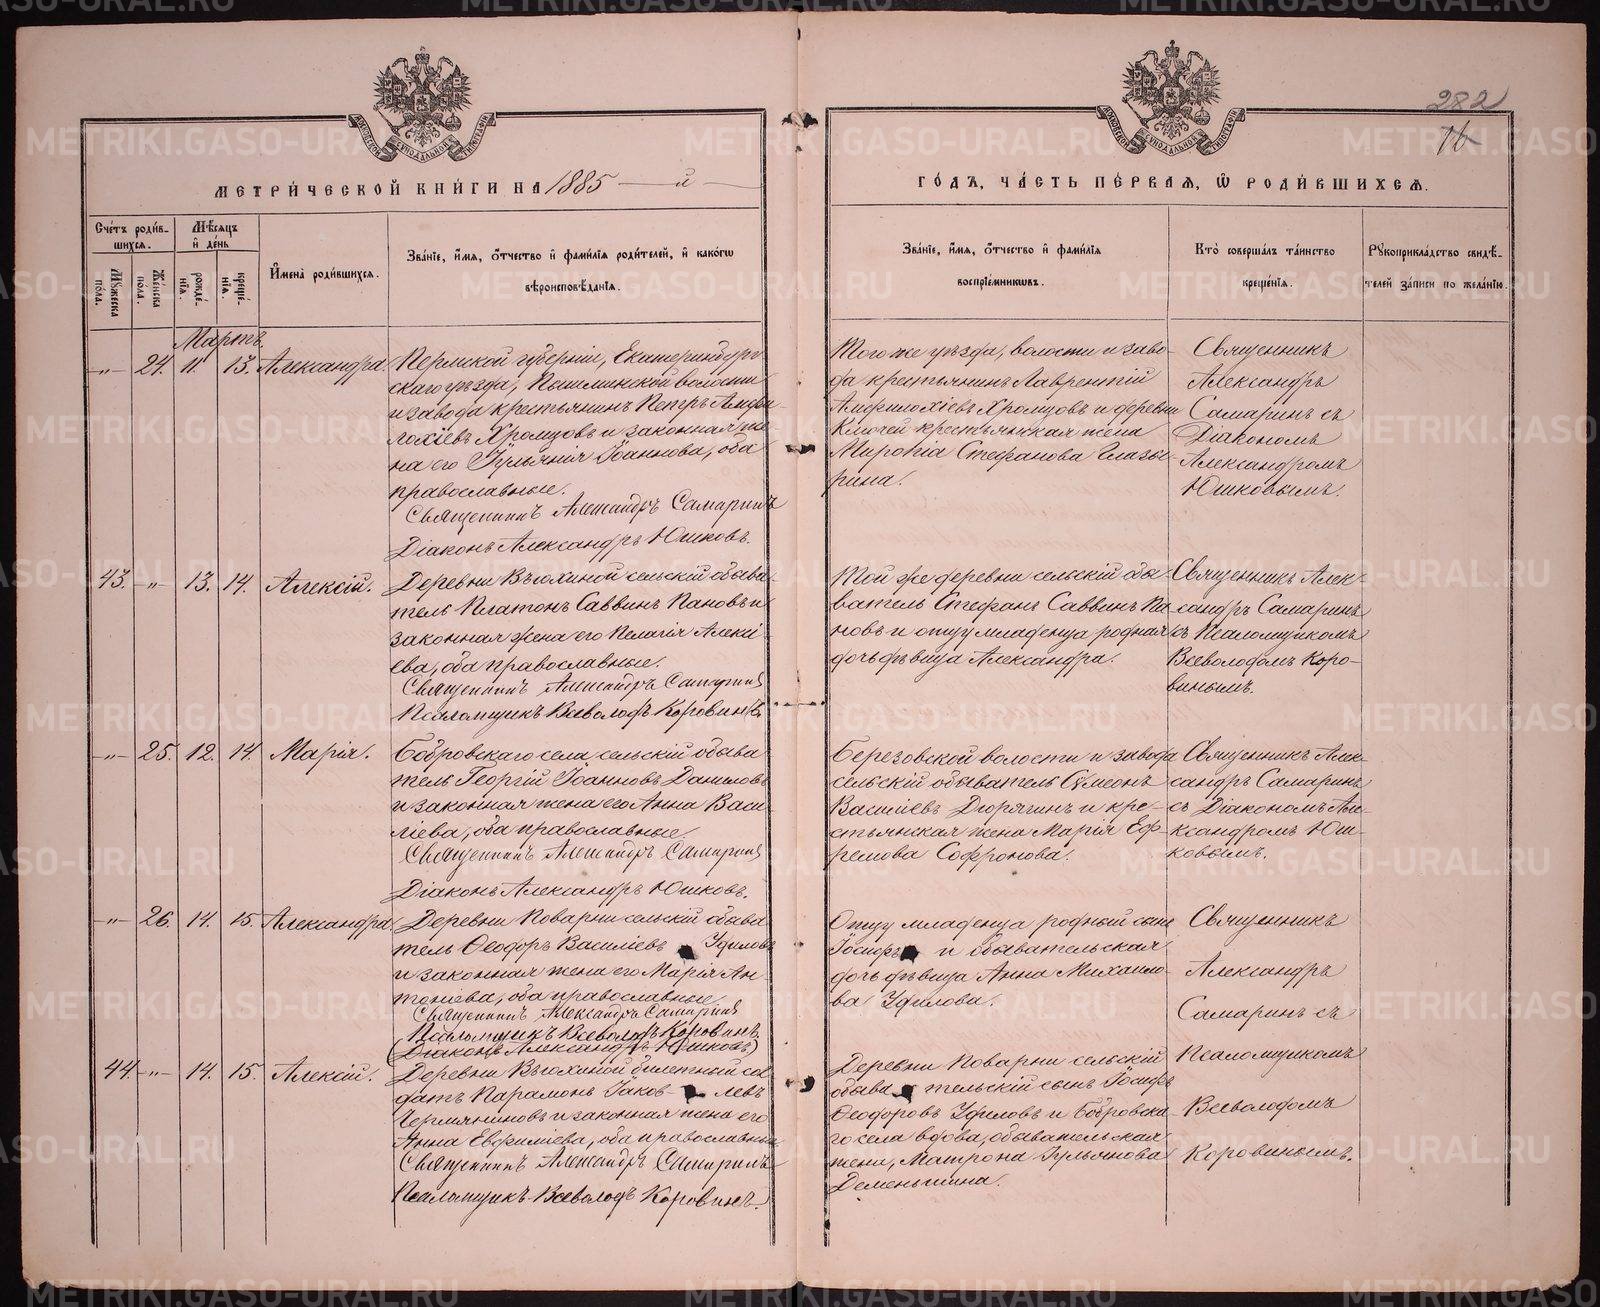 282
16
МЕТРИ́ЧЕСКОЙ КНИ́ГИ НА 1885 — й —
ГО́ДЪ, ЧА́СТЬ ПЕ́РВАЯ, Ѿ РОДИ́ВШИХСЯ.
Сче́тъ роди́в-
шихся.
Мѣ́сяцъ
и҆ де́нь
Му́жеска
по́ла.
Же́нска
по́ла.
рожде́-
нія.
креще́-
нія.
И҆мена̀ роди́вшихся.
Зва́ніе, и҆́мя, ѻ҆́тчество и҆ фами́лія роди́телей, и҆ како́гѡ
вѣроисповѣ́данія.
Зва́ніе, и҆́мя, ѻ҆́тчество и҆ фами́лія
воспріе́мниковъ.
Кто̀ соверша́лъ та́инство
креще́нія.
Рукоприкла́дство свидѣ́-
телей за́писи по жела́нію.
Мартъ.
-„- 24. 11. 13. Александра
Пермской губерніи, Екатеринбург
скаго уѣзда, Пышминской волости
и завода крестьянинъ Петръ Амфи-
лохіевъ Хромцовъ и законная же-
на его Іульянія Іоаннова, оба
православные.
Священникъ Александръ Самаринъ
Діаконъ Александръ Юшковъ.
Того же уѣзда, волости и заво-
да крестьянинъ Лаврентій
Амфилохіевъ Хромцовъ и деревни
Ключей крестьянская жена
Миропія Стефанова Глазы-
рина.
Священникъ
Александръ
Самаринъ съ
Діакономъ
Александромъ
Юшковымъ.
43. -„- 13. 14. Алексій.
Деревни Вьюхиной сельскій обыва-
тель Платонъ Саввинъ Пановъ и
законная жена его Пелагія Алексі-
ева, оба православные.
Священникъ Александръ Самаринъ
Псаломщикъ Всеволодъ Коровинъ
Той же деревни сельскій обы-
ватель Стефанъ Саввинъ Па-
новъ и отцу младенца родная
дочь дѣвица Александра.
Священникъ Алек-
сандръ Самаринъ
съ Псаломщикомъ
Всеволодомъ Коро-
винымъ.
-„- 25. 12. 14. Марія.
Бобровскаго села сельскій обыва
тель Георгій Іоанновъ Даниловъ
и законная жена его Анна Васи-
ліева, оба православные.
Священникъ Александръ Самаринъ
Діаконъ Александръ Юшковъ.
Березовской волости и завода
сельскій обыватель Сѵмеонъ
Василіевъ Дюрягинъ и кре-
стьянская жена Марія Еф-
ремова Софронова.
Священникъ Алек-
сандръ Самаринъ
съ Діакономъ Але-
ксандромъ Юш-
ковымъ.
-„- 26. 14. 15. Александра
Деревни Поварни сельскій обыва
тель Ѳеодоръ Василіевъ Уфиловъ
и законная жена его Марія Ан-
тоніева, оба православные.
Священникъ Александръ Самаринъ
Псаломщикъ Всеволодъ Коровинъ
(Діаконъ Александръ Юшковъ)
Отцу младенца родный сынъ
Іосифъ и обывательская
дочь дѣвица Анна Михаило-
ва Уфилова.
Священникъ
Александръ
Самаринъ съ
Псаломщикомъ
Всеволодомъ
Коровинымъ.
44. -„- 14. 15. Алексій.
Деревни Вьюхиной билетный сол
датъ Парамонъ Іаков- левъ
Чермяниновъ и законная жена его
Анна Евфиміева, оба православные
Священникъ Александръ Самаринъ
Псаломщикъ Всеволодъ Коровинъ.
Деревни Поварни сельскій
обыва тельскій сынъ Іосифъ
Ѳеодоровъ Уфиловъ и Бобровска-
го села вдова, обывательская
жена, Матрона Іульянова
Деменьшина.